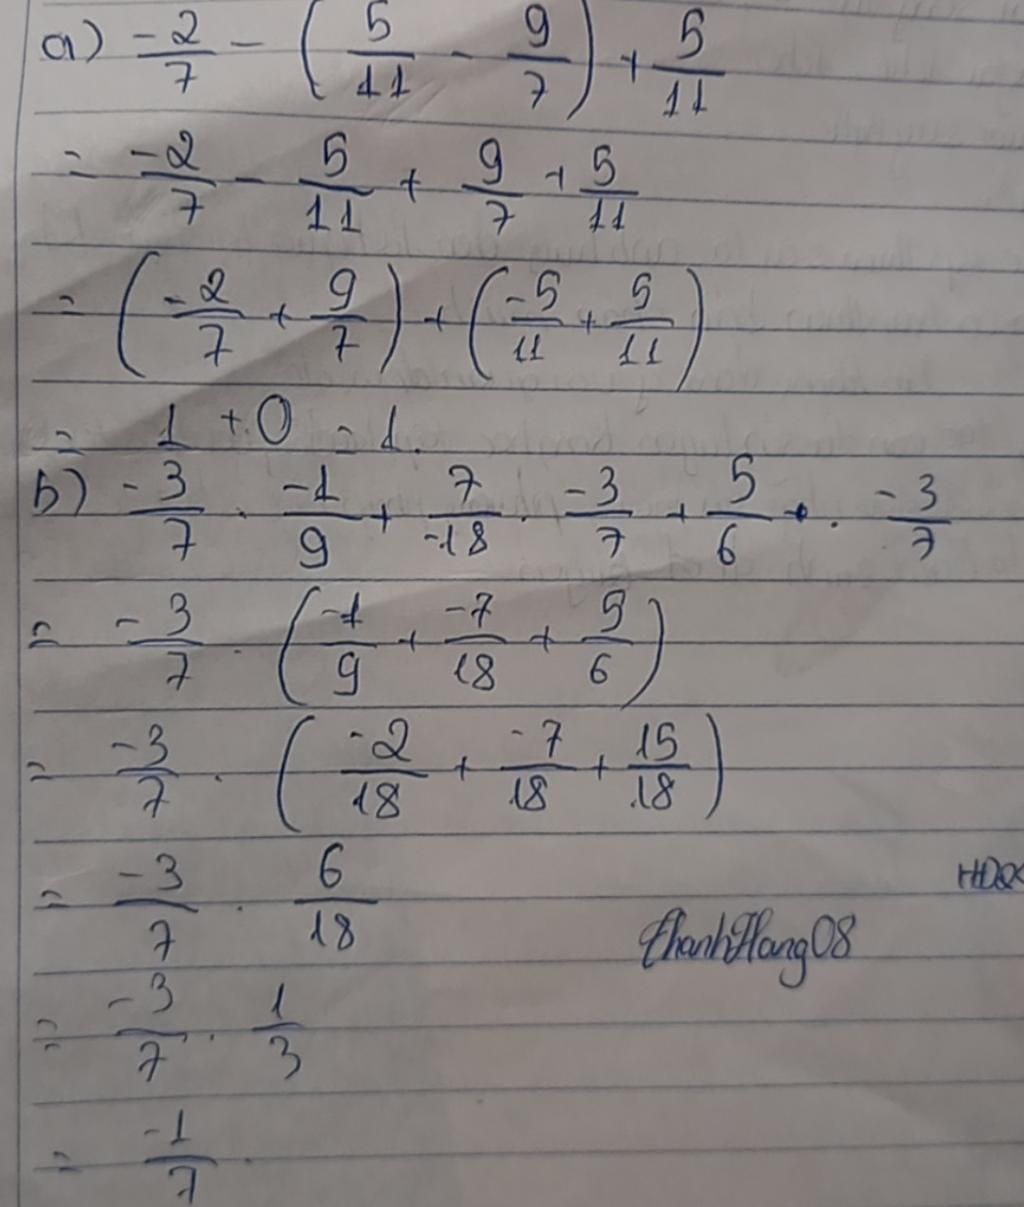 a) -2/7 - (5/11 - 9/7) + 5/11
= -2/7 - 5/11 + 9/7 + 5/11
= (-2/7 + 9/7) + (-5/11 + 5/11)
= 1 + 0 = 1.
b) -3/7 . -1/9 + 7/-18 . -3/7 + 5/6 . -3/7
= -3/7 . (-1/9 + -7/18 + 5/6)
= -3/7 . (-2/18 + -7/18 + 15/18)
= -3/7 . 6/18
thanhHang08
= -3/7 . 1/3
= -1/7.